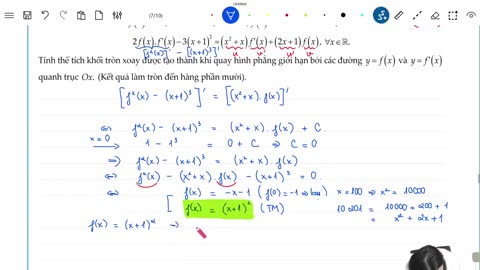 Untitled
(7/10)
2f(x).f'(x)−3(x+1)² = (x²+x)f'(x)+(2x+1)f(x), ∀x∈ℝ.
[f²(x)]' − [(x+1)³]' u v' u' v
Tính thể tích khối tròn xoay được tạo thành khi quay hình phẳng giới hạn bởi các đường y = f(x) và y = f'(x)
quanh trục Ox. (Kết quả làm tròn đến hàng phần mười).
[f²(x) − (x+1)³]' = [(x²+x).f(x)]'
⇔ f²(x) − (x+1)³ = (x²+x).f(x) + C
x=0 → 1 − 1³ = 0 + C ⇒ C=0
⇒ f²(x) − (x+1)³ = (x²+x) f(x)
⇔ f²(x) − (x²+x) f(x) − (x+1)³ = 0.
⇔ [ f(x) = −x−1 (f(0)=−1 ⇒ loại) x=100 ⇒ x² = 10000
f(x) = (x+1)² (TM) 10 201 = 10000 + 200 + 1
= x² + 2x + 1
f(x) = (x+1)² →